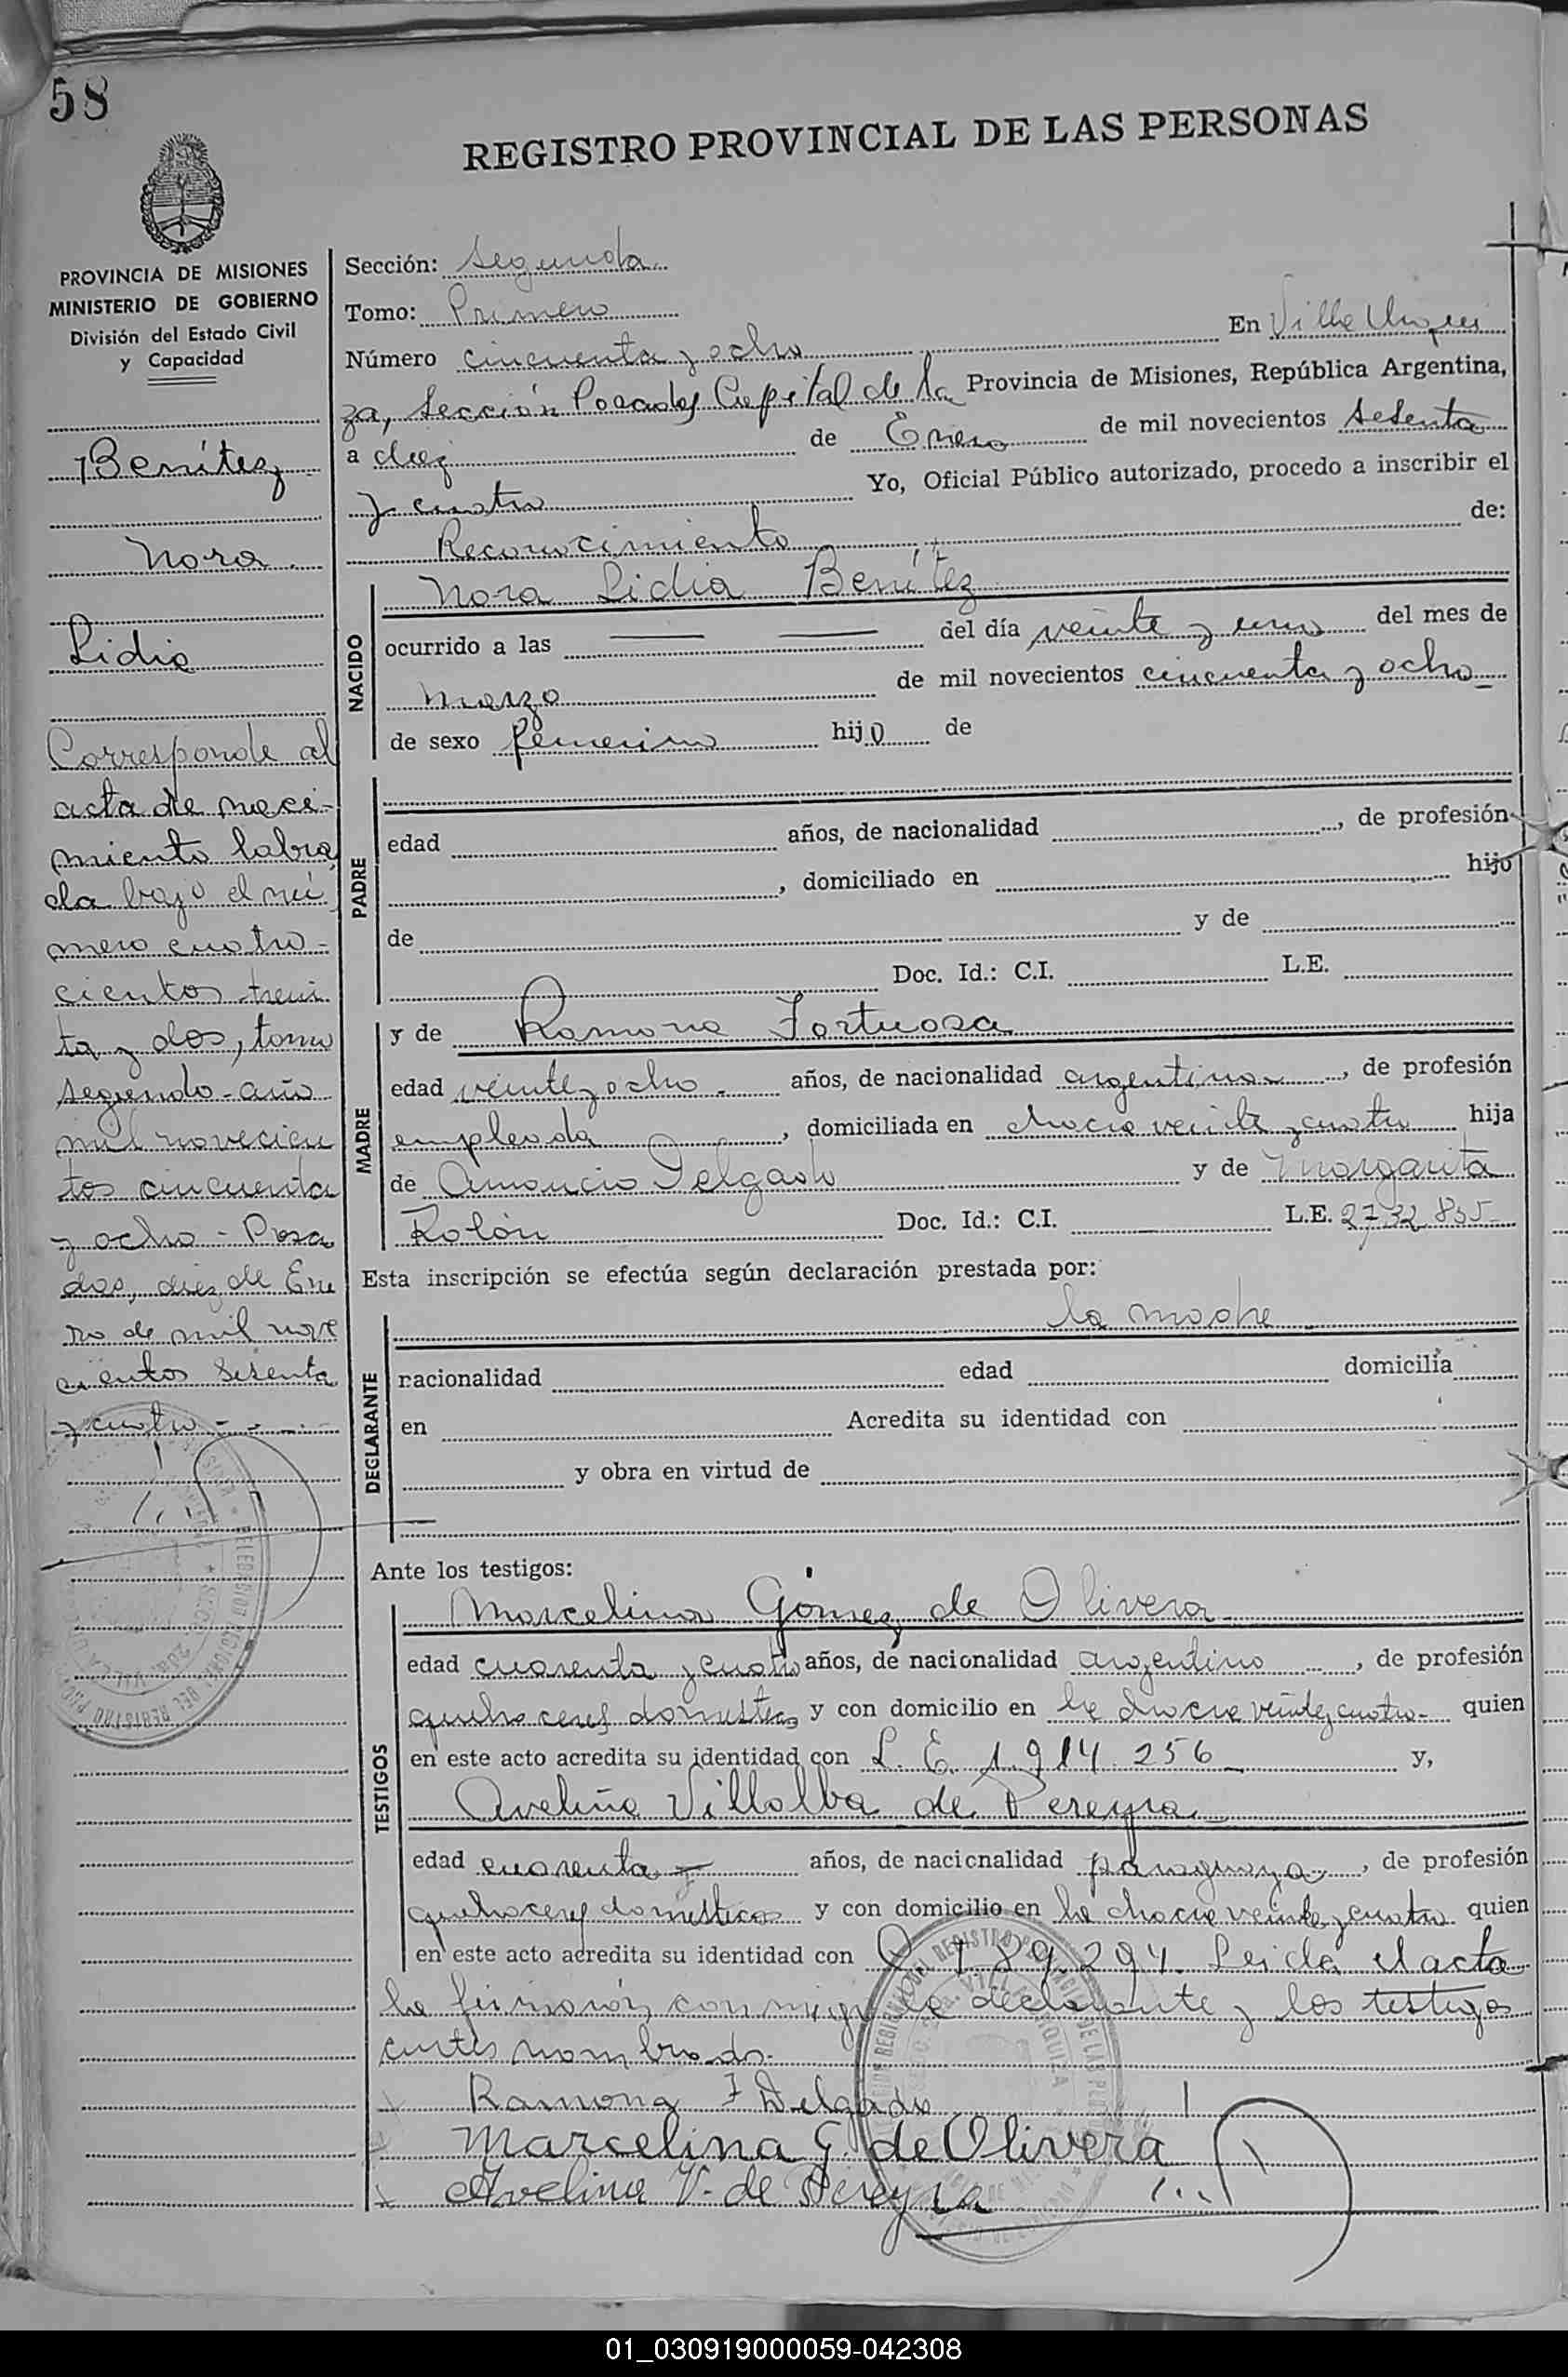 58
REGISTRO PROVINCIAL DE LAS PERSONAS
PROVINCIA DE MISIONES
MINISTERIO DE GOBIERNO
División del Estado Civil
y Capacidad
Benítez
Nora
Lidia
Corresponde al
acta de naci-
miento labra
da bajo el nú
mero cuatro-
cientos trein
ta y dos, tomo
segundo-año
mil novecien
tos cincuenta
y ocho - Posa
das, diez de Ene
ro de mil nove
cientos sesenta
y cuatro - - -
Sección: Segunda
Tomo: Primero
Número cincuenta y ocho En Villa Urqui
za, Sección Posadas Capital de la Provincia de Misiones, República Argentina,
a diez de Enero de mil novecientos sesenta
y cuatro Yo, Oficial Público autorizado, procedo a inscribir el
Reconocimiento de:
NACIDO
Nora Lidia Benítez
ocurrido a las —— —— del día veinte y uno del mes de
marzo de mil novecientos cincuenta y ocho
de sexo femenino hija de
PADRE
edad años, de nacionalidad , de profesión
, domiciliado en hijo
de y de
Doc. Id.: C.I. L.E.
MADRE
y de Ramona Fortuosa
edad veinte y ocho años, de nacionalidad argentina, de profesión
empleada, domiciliada en chacra veinte y cuatro hija
de Amancio Delgado y de Margarita
Rolón Doc. Id.: C.I. L.E. 2.732.835
Esta inscripción se efectúa según declaración prestada por:
DECLARANTE
la madre
nacionalidad edad domicilia
en Acredita su identidad con
y obra en virtud de
Ante los testigos:
TESTIGOS
Marcelina Gómez de Olivera
edad cuarenta y cuatro años, de nacionalidad argentina, de profesión
quehaceres domesticos y con domicilio en la chacra veinte y cuatro quien
en este acto acredita su identidad con L. E. 1.914.256 y,
Avelina Villalba de Pereyra
edad cuarenta años, de nacionalidad paraguaya, de profesión
quehaceres domesticos y con domicilio en la chacra veinte y cuatro quien
en este acto acredita su identidad con 89.294. Leida el acta
la firmarón conmigo la declarante y los testigos
antes nombrado.
Ramona F Delgado
Marcelina G. de Olivera
Avelina V. de Pereyra
01_030919000059-042308